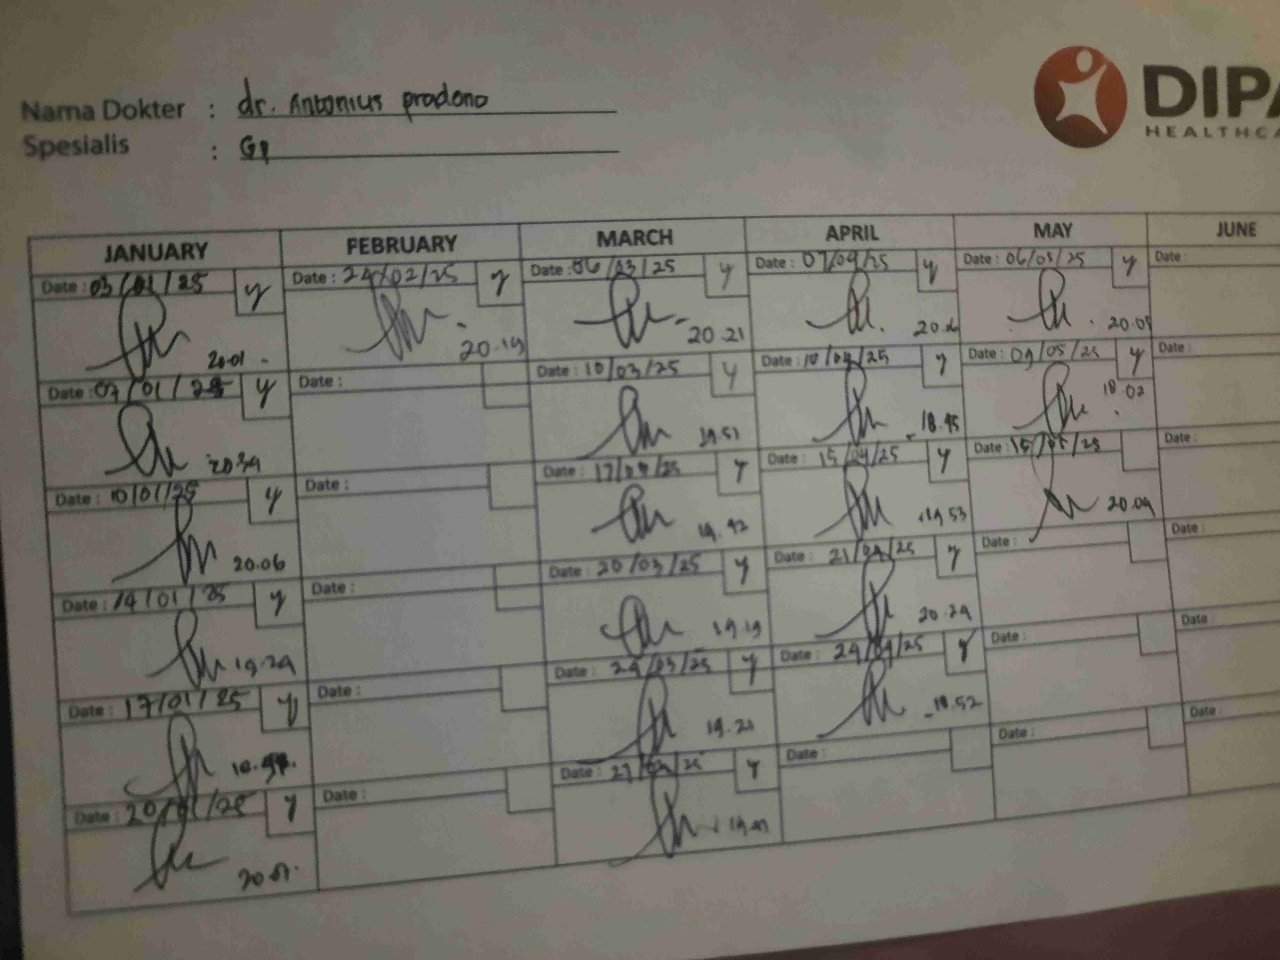 Nama Dokter : dr. Antonius pradono
Spesialis : GP
DIPA
HEALTHCA
JANUARY FEBRUARY MARCH APRIL MAY JUNE
Date : 03/01/25 y Date : 24/02/25 y Date : 06/03/25 y Date : 07/04/25 y Date : 06/05/25 y Date :
20.01 20.19 20.21 20.07
Date : 07/01/25 y Date : Date : 10/03/25 y Date : 10/04/25 y Date : 09/05/25 y Date :
20.34 19.51 18.45 18.02
Date : 10/01/25 y Date : Date : 17/03/25 y Date : 15/04/25 y Date : 15/05/25 Date :
20.06 19.42 19.53 20.04
Date : 14/01/25 y Date : Date : 20/03/25 y Date : 21/04/25 y Date : Date :
19.24 19.19 20.24
Date : 17/01/25 y Date : Date : 24/03/25 y Date : 24/04/25 y Date : Date
19.21 18.52
Date : 20/01/25 y Date : Date : 27/03/25 y Date : Date : Date :